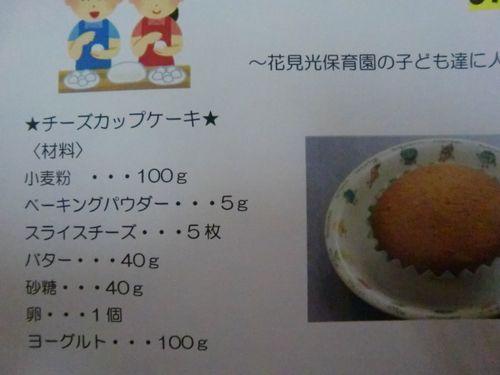 ～花見光保育園の子ども達に人
★チーズカップケーキ★
〈材料〉
小麦粉　・・・100ｇ
ベーキングパウダー・・・５ｇ
スライスチーズ・・・５枚
バター・・・40ｇ
砂糖・・・40ｇ
卵・・・１個
ヨーグルト・・・100ｇ